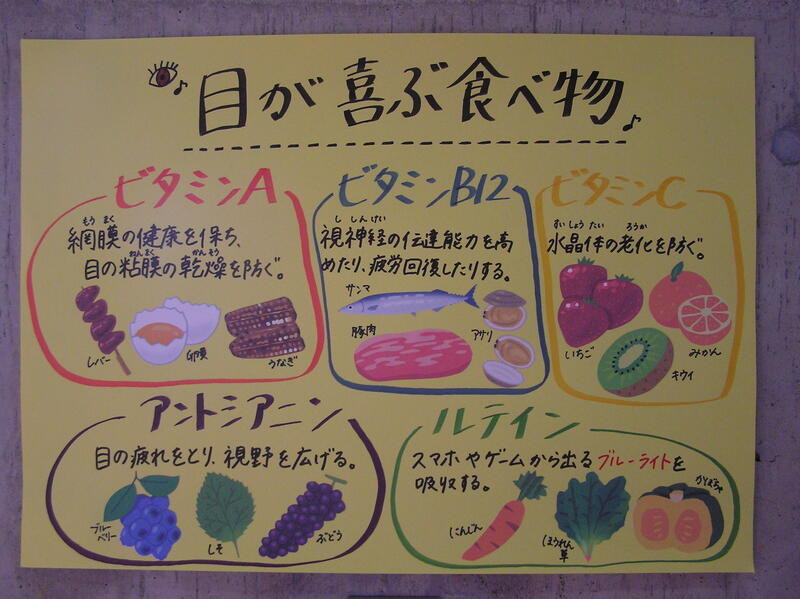 目が喜ぶ食べ物
ビタミンA
もう まく
網膜の健康を保ち、
ねんまく かんそう
目の粘膜の乾燥を防ぐ。
レバー
卵黄
うなぎ
ビタミンB12
し しんけい
視神経の伝達能力を高
めたり、疲労回復したりする。
サンマ
豚肉
アサリ
ビタミンC
すい しょう たい ろうか
水晶体の老化を防ぐ。
いちご
みかん
キウイ
アントシアニン
目の疲れをとり、視野を広げる。
ブルー
ベリー
しそ
ぶどう
ルテイン
スマホやゲームから出るブルーライトを
吸収する。
にんじん
ほうれん
草
かぼちゃ